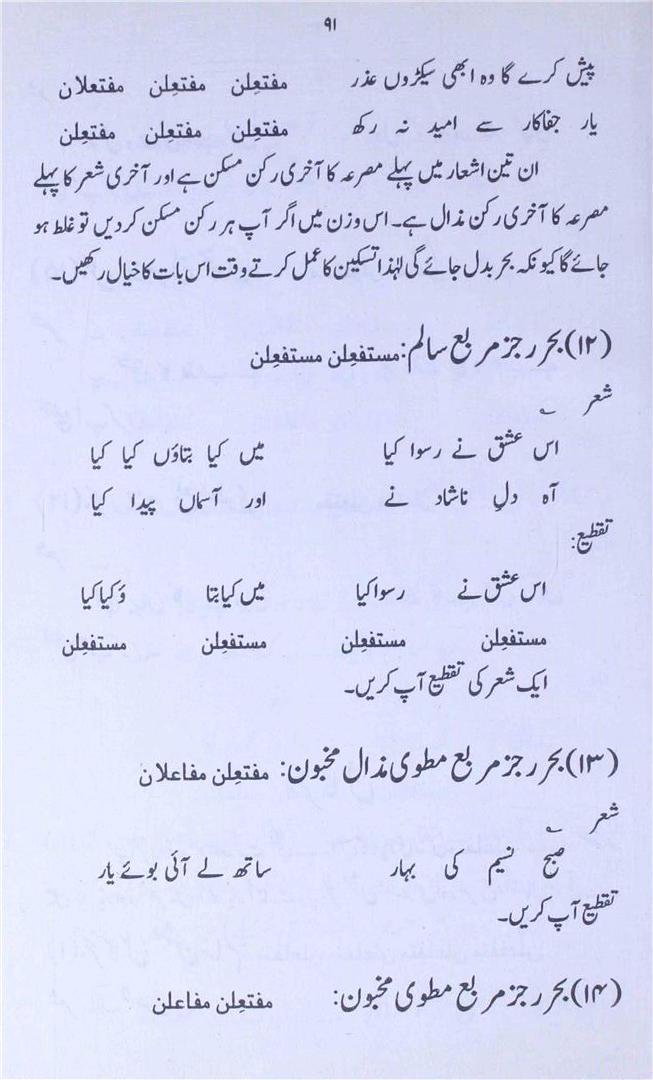 ۹۱
پیش کرے گا وہ ابھی سیکڑوں عذر مفتعِلن مفتعِلن مفتعلان
یار جفاکار سے امید نہ رکھ مفتعِلن مفتعِلن مفتعِلن
ان تین اشعار میں پہلے مصرعہ کا آخری رکن مسکن ہے اور آخری شعر کا پہلے
مصرعہ کا آخری رکن مذال ہے۔ اس وزن میں اگر آپ ہر رکن مسکن کردیں تو غلط ہو
جائے گا کیونکہ بحر بدل جائے گی لہٰذا تسکین کا عمل کرتے وقت اس بات کا خیال رکھیں۔
(۱۲) بحر رجز مربع سالم: مستفعِلن مستفعِلن
شعر ؎
اس عشق نے رسوا کیا میں کیا بتاؤں کیا کیا
آہ دلِ ناشاد نے اور آسماں پیدا کیا
تقطیع:
اس عشق نے رسوا کیا میں کیا بتا وُ کیا کیا
مستفعِلن مستفعِلن مستفعِلن مستفعِلن
ایک شعر کی تقطیع آپ کریں۔
(۱۳) بحر رجز مربع مطوی مذال مخبون: مفتعِلن مفاعلان
شعر ؎
صبح نسیم کی بہار ساتھ لے آئی بوئے یار
تقطیع آپ کریں۔
(۱۴) بحر رجز مربع مطوی مخبون: مفتعِلن مفاعلن